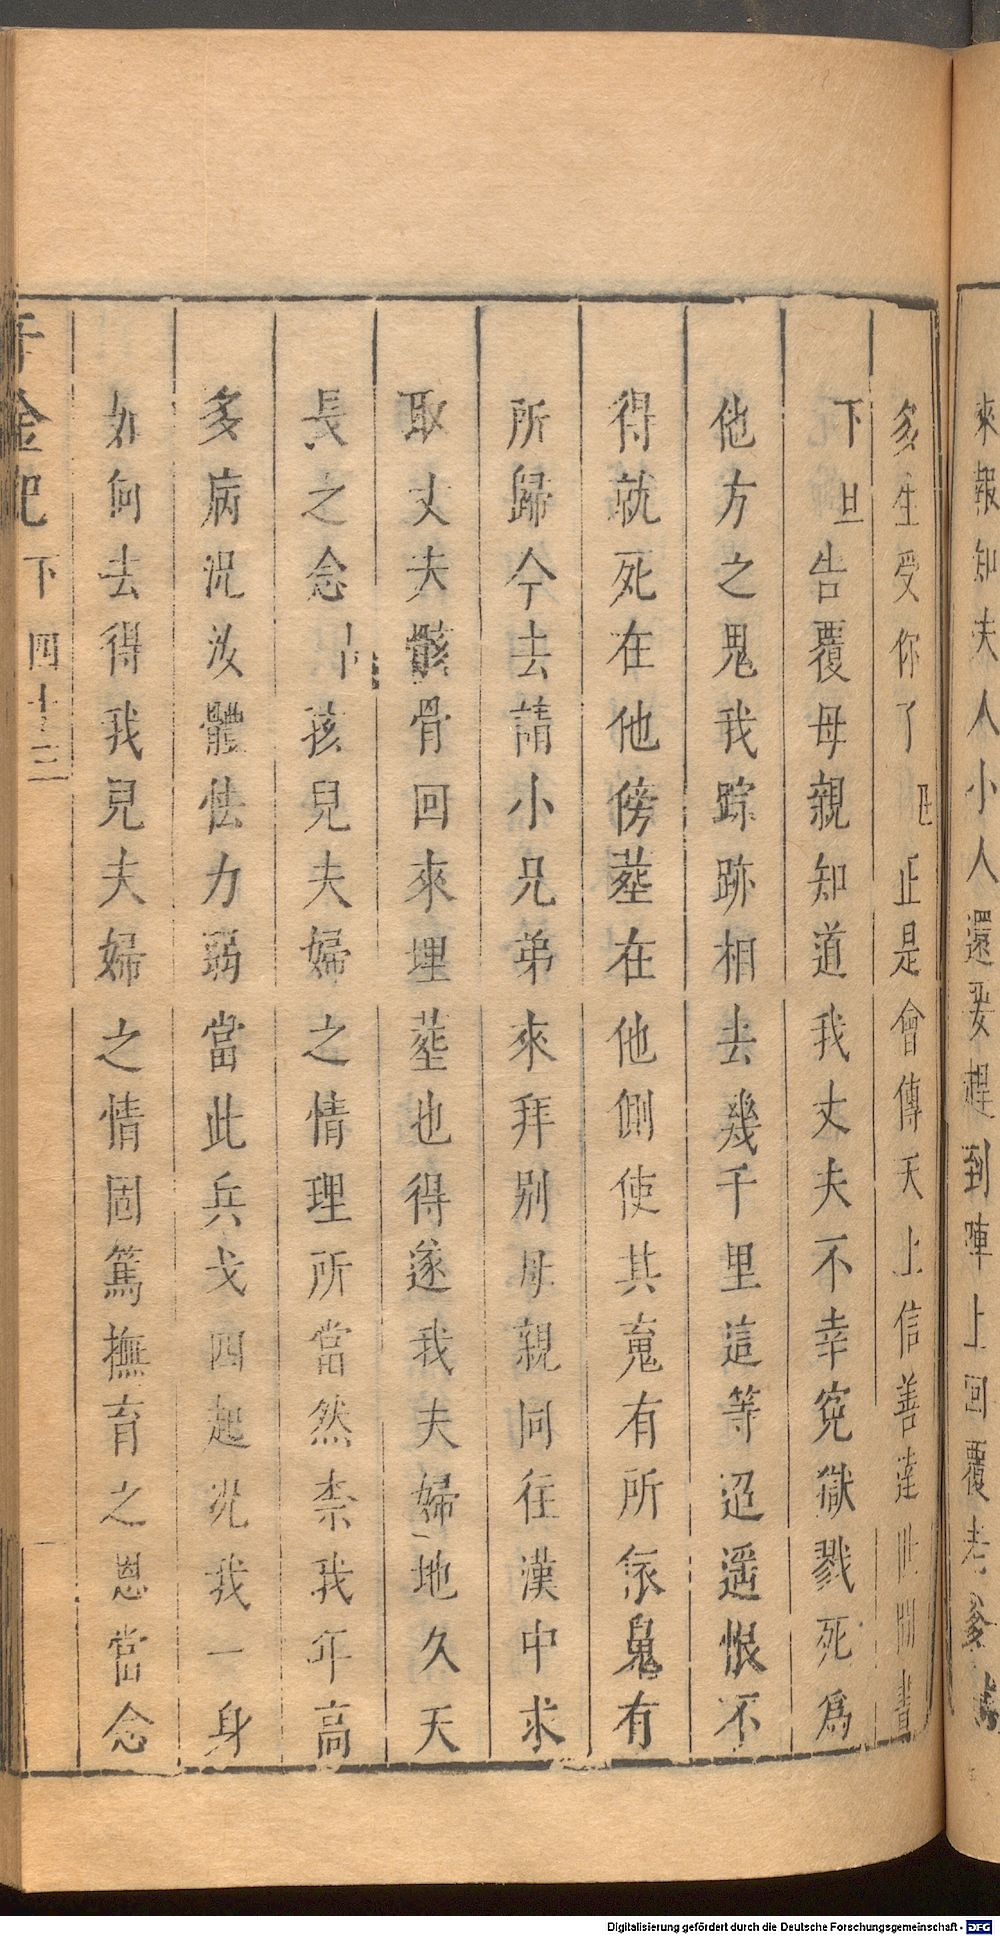 來報知夫人小人還要趕到陣上回覆老爹
多生受你了 丑 正是會傳天上信善達世間書
下 旦 告覆母親知道我丈夫不幸寃獄戮死為
他方之鬼我踪跡相去幾千里這等迢遥恨不
得就死在他傍塟在他側使其䰟有所依鬼有
所歸今去請小兄弟來拜別母親同往漢中求
取丈夫骸骨回來埋塟也得遂我夫婦地久天
長之念 孩兒夫婦之情理所當然柰我年高
多病況汝體怯力弱當此兵戈四起況我一身
如何去得我兒夫婦之情固篤撫育之恩當念
千金記 下 四十三
Digitalisierung gefördert durch die Deutsche Forschungsgemeinschaft - DFG